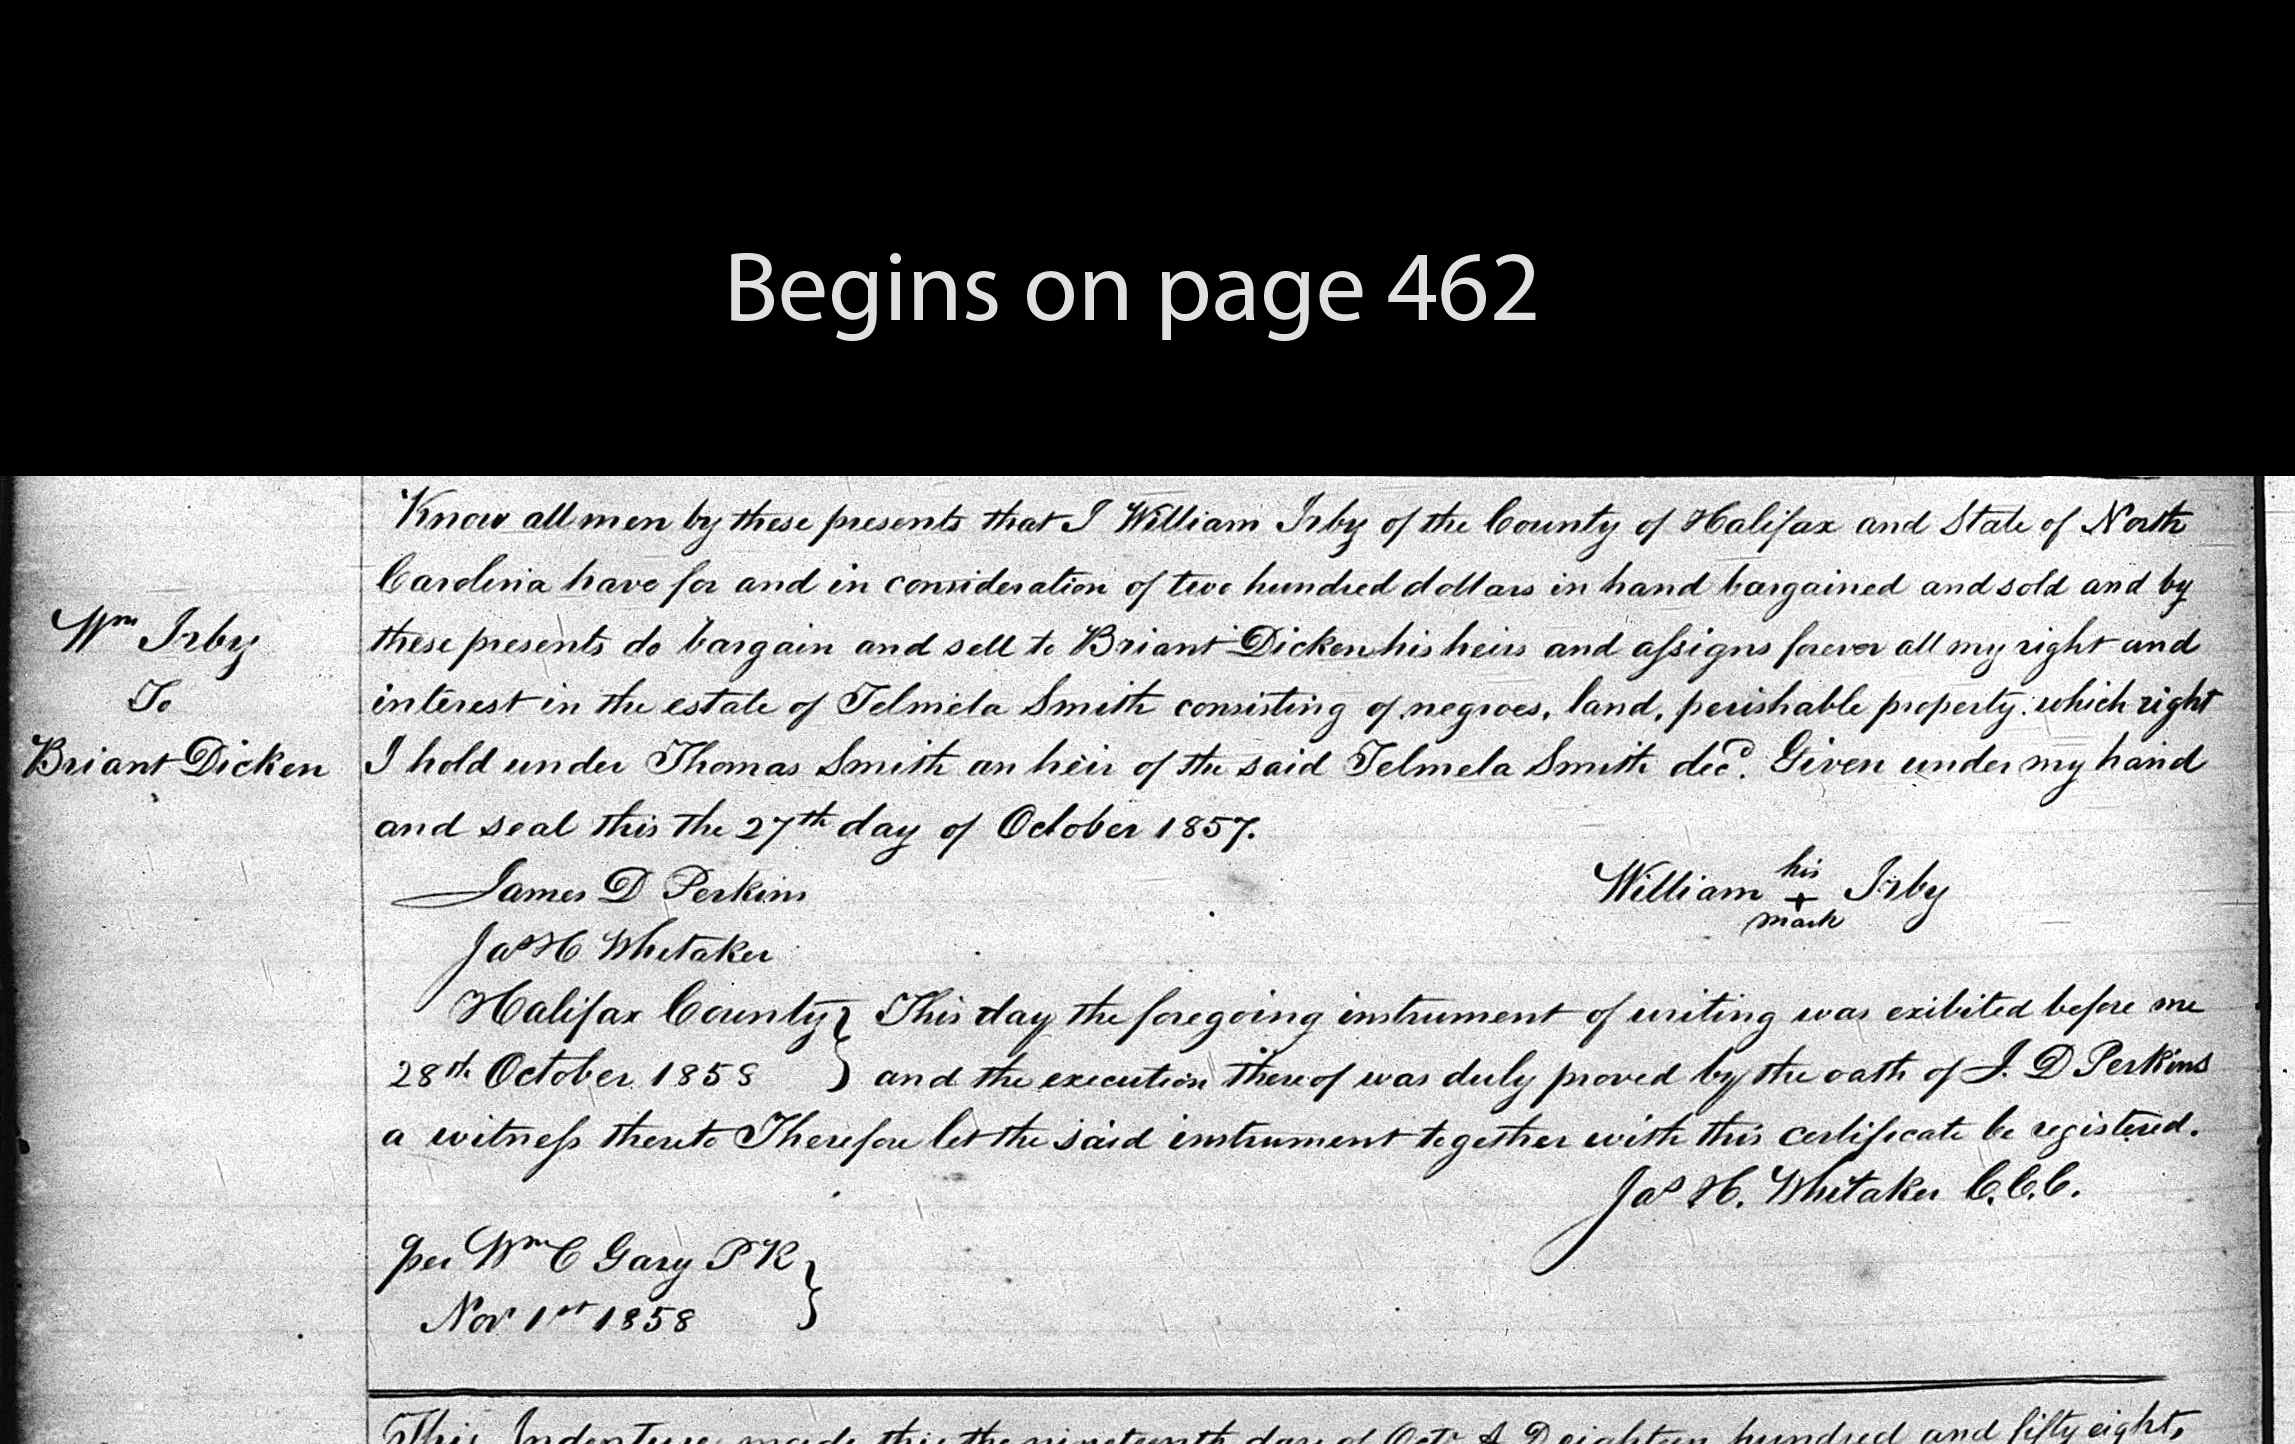 Begins on page 462
Know all men by these presents that I William Irby of the County of Halifax and State of North
Carolina have for and in consideration of two hundred dollars in hand bargained and sold and by
Wm Irby
these presents do bargain and sell to Briant Dicken his heirs and assigns forever all my right and
To
interest in the estate of Telmela Smith consisting of negroes, land, perishable property. which right
Briant Dicken
I hold under Thomas Smith an heir of the said Telmela Smith decd. Given under my hand
and seal this the 27th day of October 1857.
James D Perkins
William his + mark Irby
Jas H Whitaker
Halifax County } This day the foregoing instrument of writing was exibited before me
28th October 1858 } and the execution thereof was duly proved by the oath of J. D Perkins
a witness thereto Therefore let the said instrument together with this certificate be registered.
Jas H. Whitaker C.C.C.
per Wm C Gary P R }
Nov 1st 1858
This Indenture made this the nineteenth day of Octr A D eighteen hundred and fifty eight,